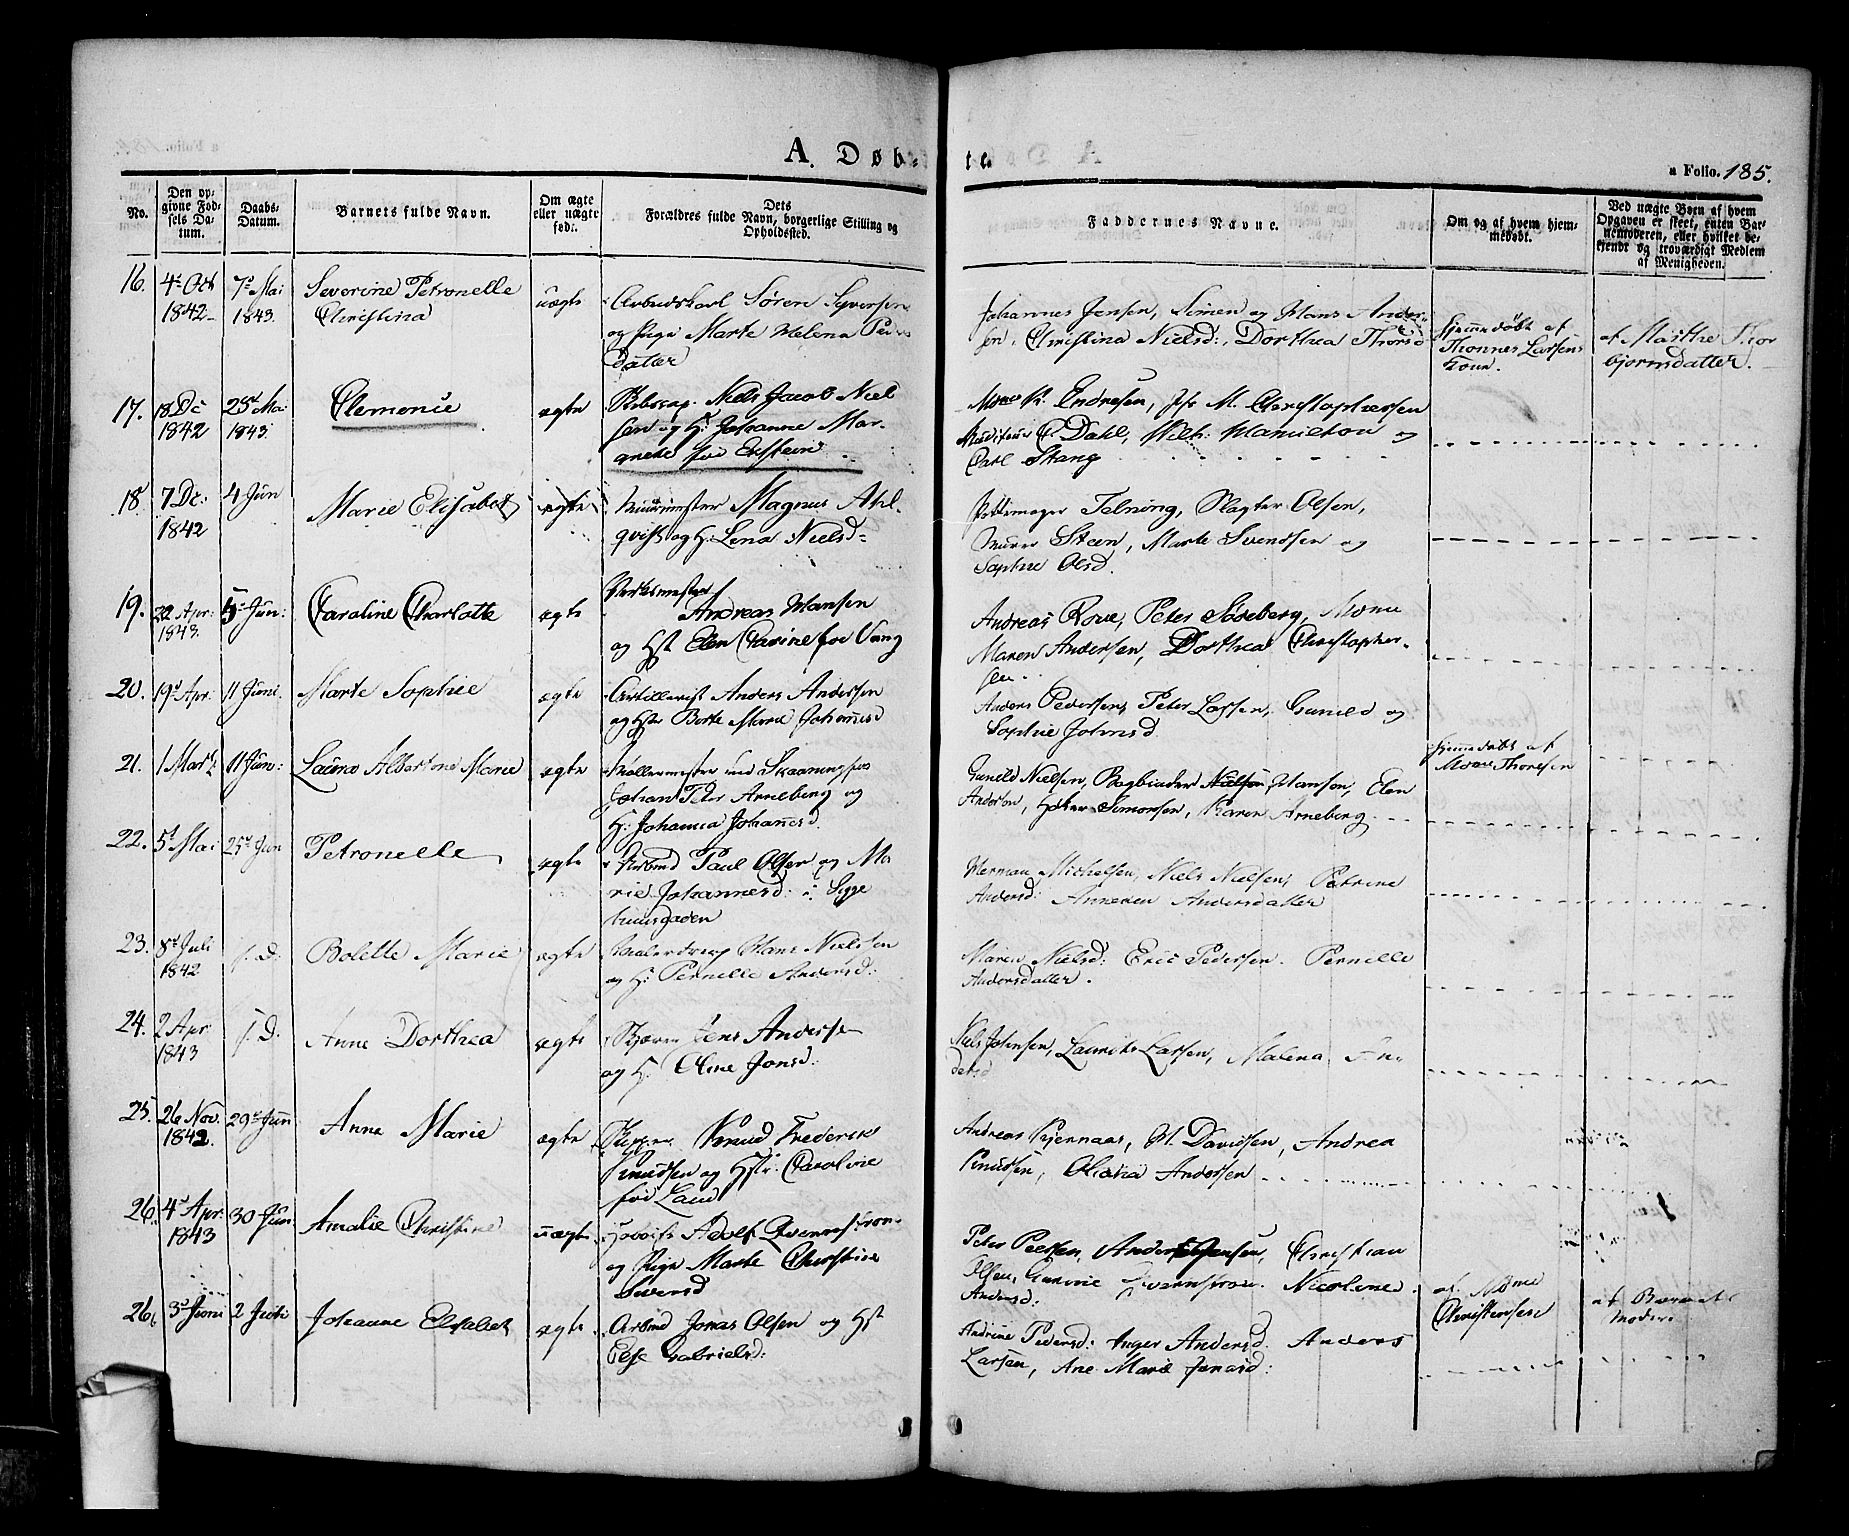 A. Døbte.
a Folio. 185.
No.
Den opgivne Fødsels Datum.
Daabs-Datum.
Barnets fulde Navn.
Om ægte eller uægte født.
Dets Forældres fulde Navn, borgerlige Stilling og Opholdssted.
Faddernes Navne.
Om og af hvem hjemmedøbt.
Ved uægte Børn af hvem Opgaven er skeet, enten Barnemoderen, eller hvilket bekjendt og troværdigt Medlem af Menigheden.
16. 4de Oct 1842 7de Mai 1843. Severine Petronelle Christina uægte
Søren Syversen
og Pige Marte Helena
datter
Johannes Jensen, Simen og Hans Ander-
sen, Christina Nielsd:, Dorthea Thorsd
Hjemmedøbt af
Thonnes Larsens
Kone.
af Marthe Thor
bjørnsdatter.
17. 18 Dc 1842 25de Mai 1843. Clemence ægte
Niels Jacob Niel
sen og H: Johanne Mar-
grethe fød Eckstein
Endresen, M. Christophersen
Dahl, Wilh: Hamilton og
Carl Stang
18. 7 Dc: 1842 4 Jun Marie Elisabet ægte
Muurmester Magnus Ahl
qvist og H: Lena Nielsd
Slagter Olsen,
Murer Steen, Marte Svendsen og
Sophie Olsd.
19. 22 Apr: 1843. 5 Jun: Caroline Charlotte ægte
Andreas Hansen
og Hst Elen Cavrine fød Vang
Andreas Rowe, Peter Södeberg,
Maren Andersen, Dorthea Christopher-
sen.
20. 19de Apr. 11 Juni. Marte Sophie ægte
Artillerist Anders Andersen
og Hst Berte Marie Johannesd
Anders Pedersen, Peter Larsen, Gunild og
Sophie Johnsd
21. 1 Marts 11 Jun: Laura Albertine Marie ægte
Møllermester ved
Johan Peter Arneberg og
H: Johanna Johannesd.
Gunild Nielsen, Bogbinder Hansen, Elen
Andersen, Simonsen, Karen Arneberg.
Hjemmedøbt af
Thoresen
22. 5t Mai 25de Jun Petronelle ægte
Arbmd Paul Olsen og Ma
rie Johannesd: i Syge
huusgaden
Herman Michelsen, Niels Nielsen, Petrine
Andersd: Anneken Andersdatter
23. 8de Juli 1842 s. D. Bolette Marie ægte
Hans Nielsen
og H: Pernille Andersd:
Maren Nielsd: Eric Pedersen. Pernille
Andersdatter.
24. 2 Apr: 1843 s. D. Anne Dorthea ægte
Jens Andersen
og H: Oline Jonsd:
Niels Johnsen, Laurits Larsen, Malena An-
dersd
25. 26 Nov. 1842. 29de Jun Anne Marie ægte
Knud Frederik
Knudsen og Hstr: Caroline
fød Lund
Andreas Kjernaas, H. Davidsen, Andrea
Knudsen, Andersen
26. 4de Apr: 1843 30 Jun Amalie Christine uægte
Adolf Qvernstrøm
og Pige Marte Christine
Siversd
Peter Peersen, Anders Jensen, Christian
Olsen, Gurine Nicoline
Andersd:
af
Christensen
af Barnets
Moder.
26. 3de Juni 2 Juli Johanne Elisabet ægte
Arbmd Jonas Olsen og Hst
Else Gabrielsd:
Andrine Pedersd: Inger Andersd. Anders
Larsen, Ane Marie Jonasd: